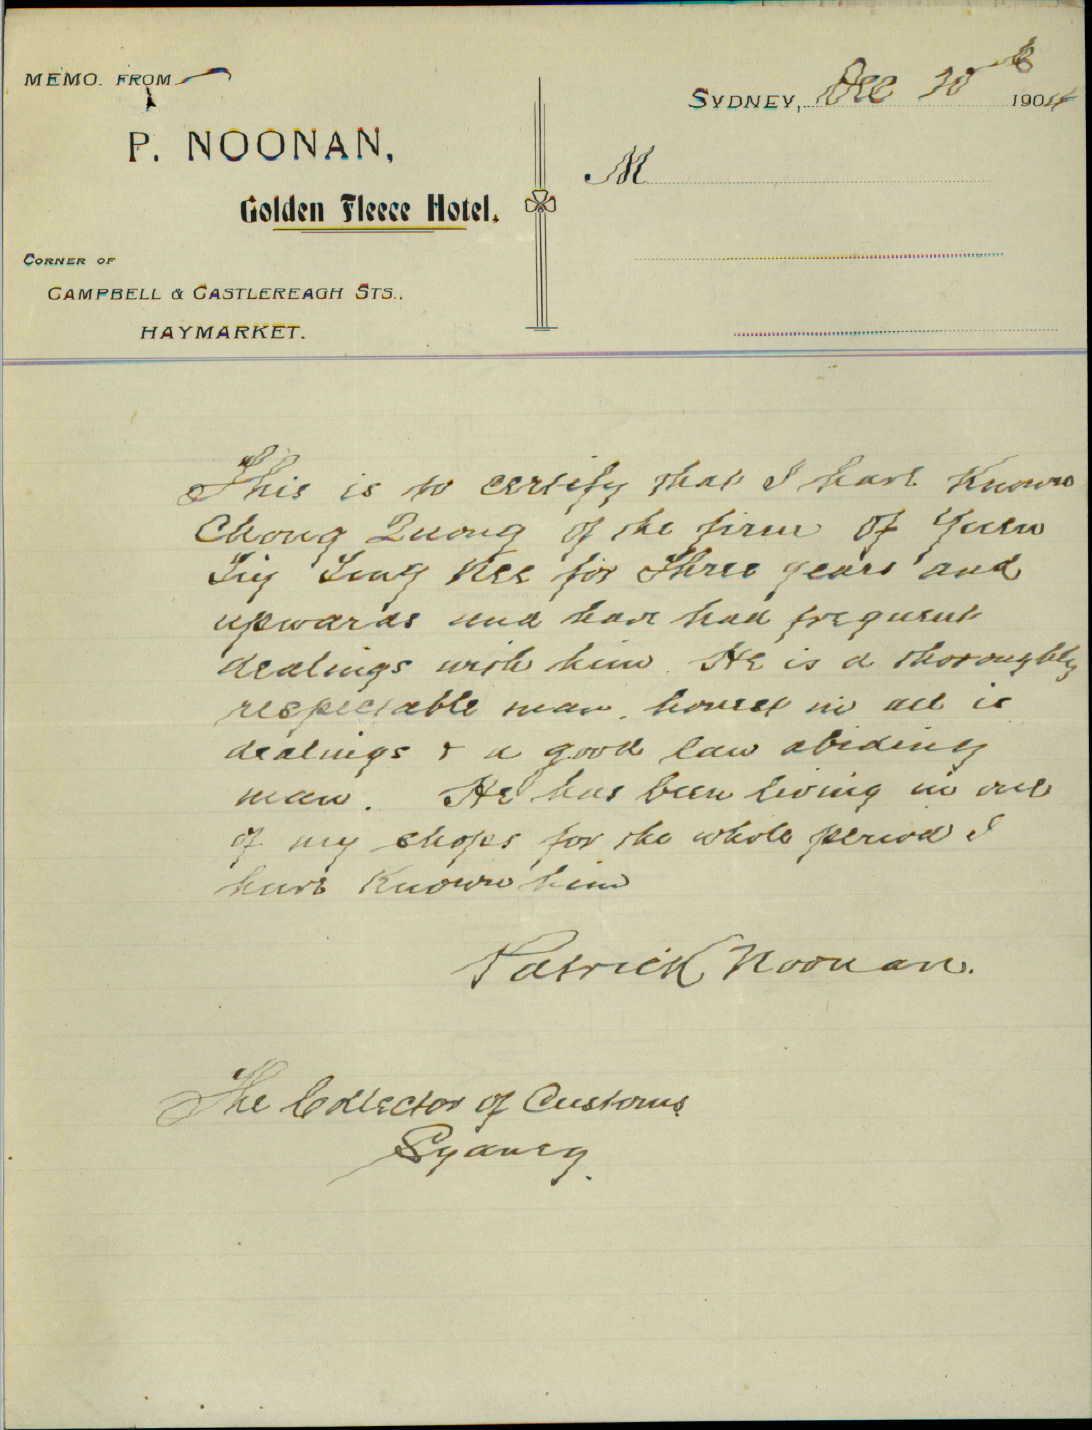 MEMO. FROM
P. NOONAN,
Golden Fleece Hotel.
CORNER OF
CAMPBELL & CASTLEREAGH STS.,
HAYMARKET.
SYDNEY, Dec 30th 1904
M
This is to certify that I have Known
Chong Quong of the firm of Yuen
Tiy Kee for Three years and
upwards and have had frequent
dealings with him. He is a thoroughly
respectable man, honest in all is
dealings & a good law abiding
man. He has been living in one
of my shops for the whole period I
have Known him
Patrick Noonan.
The Collector of Customs
Sydney.